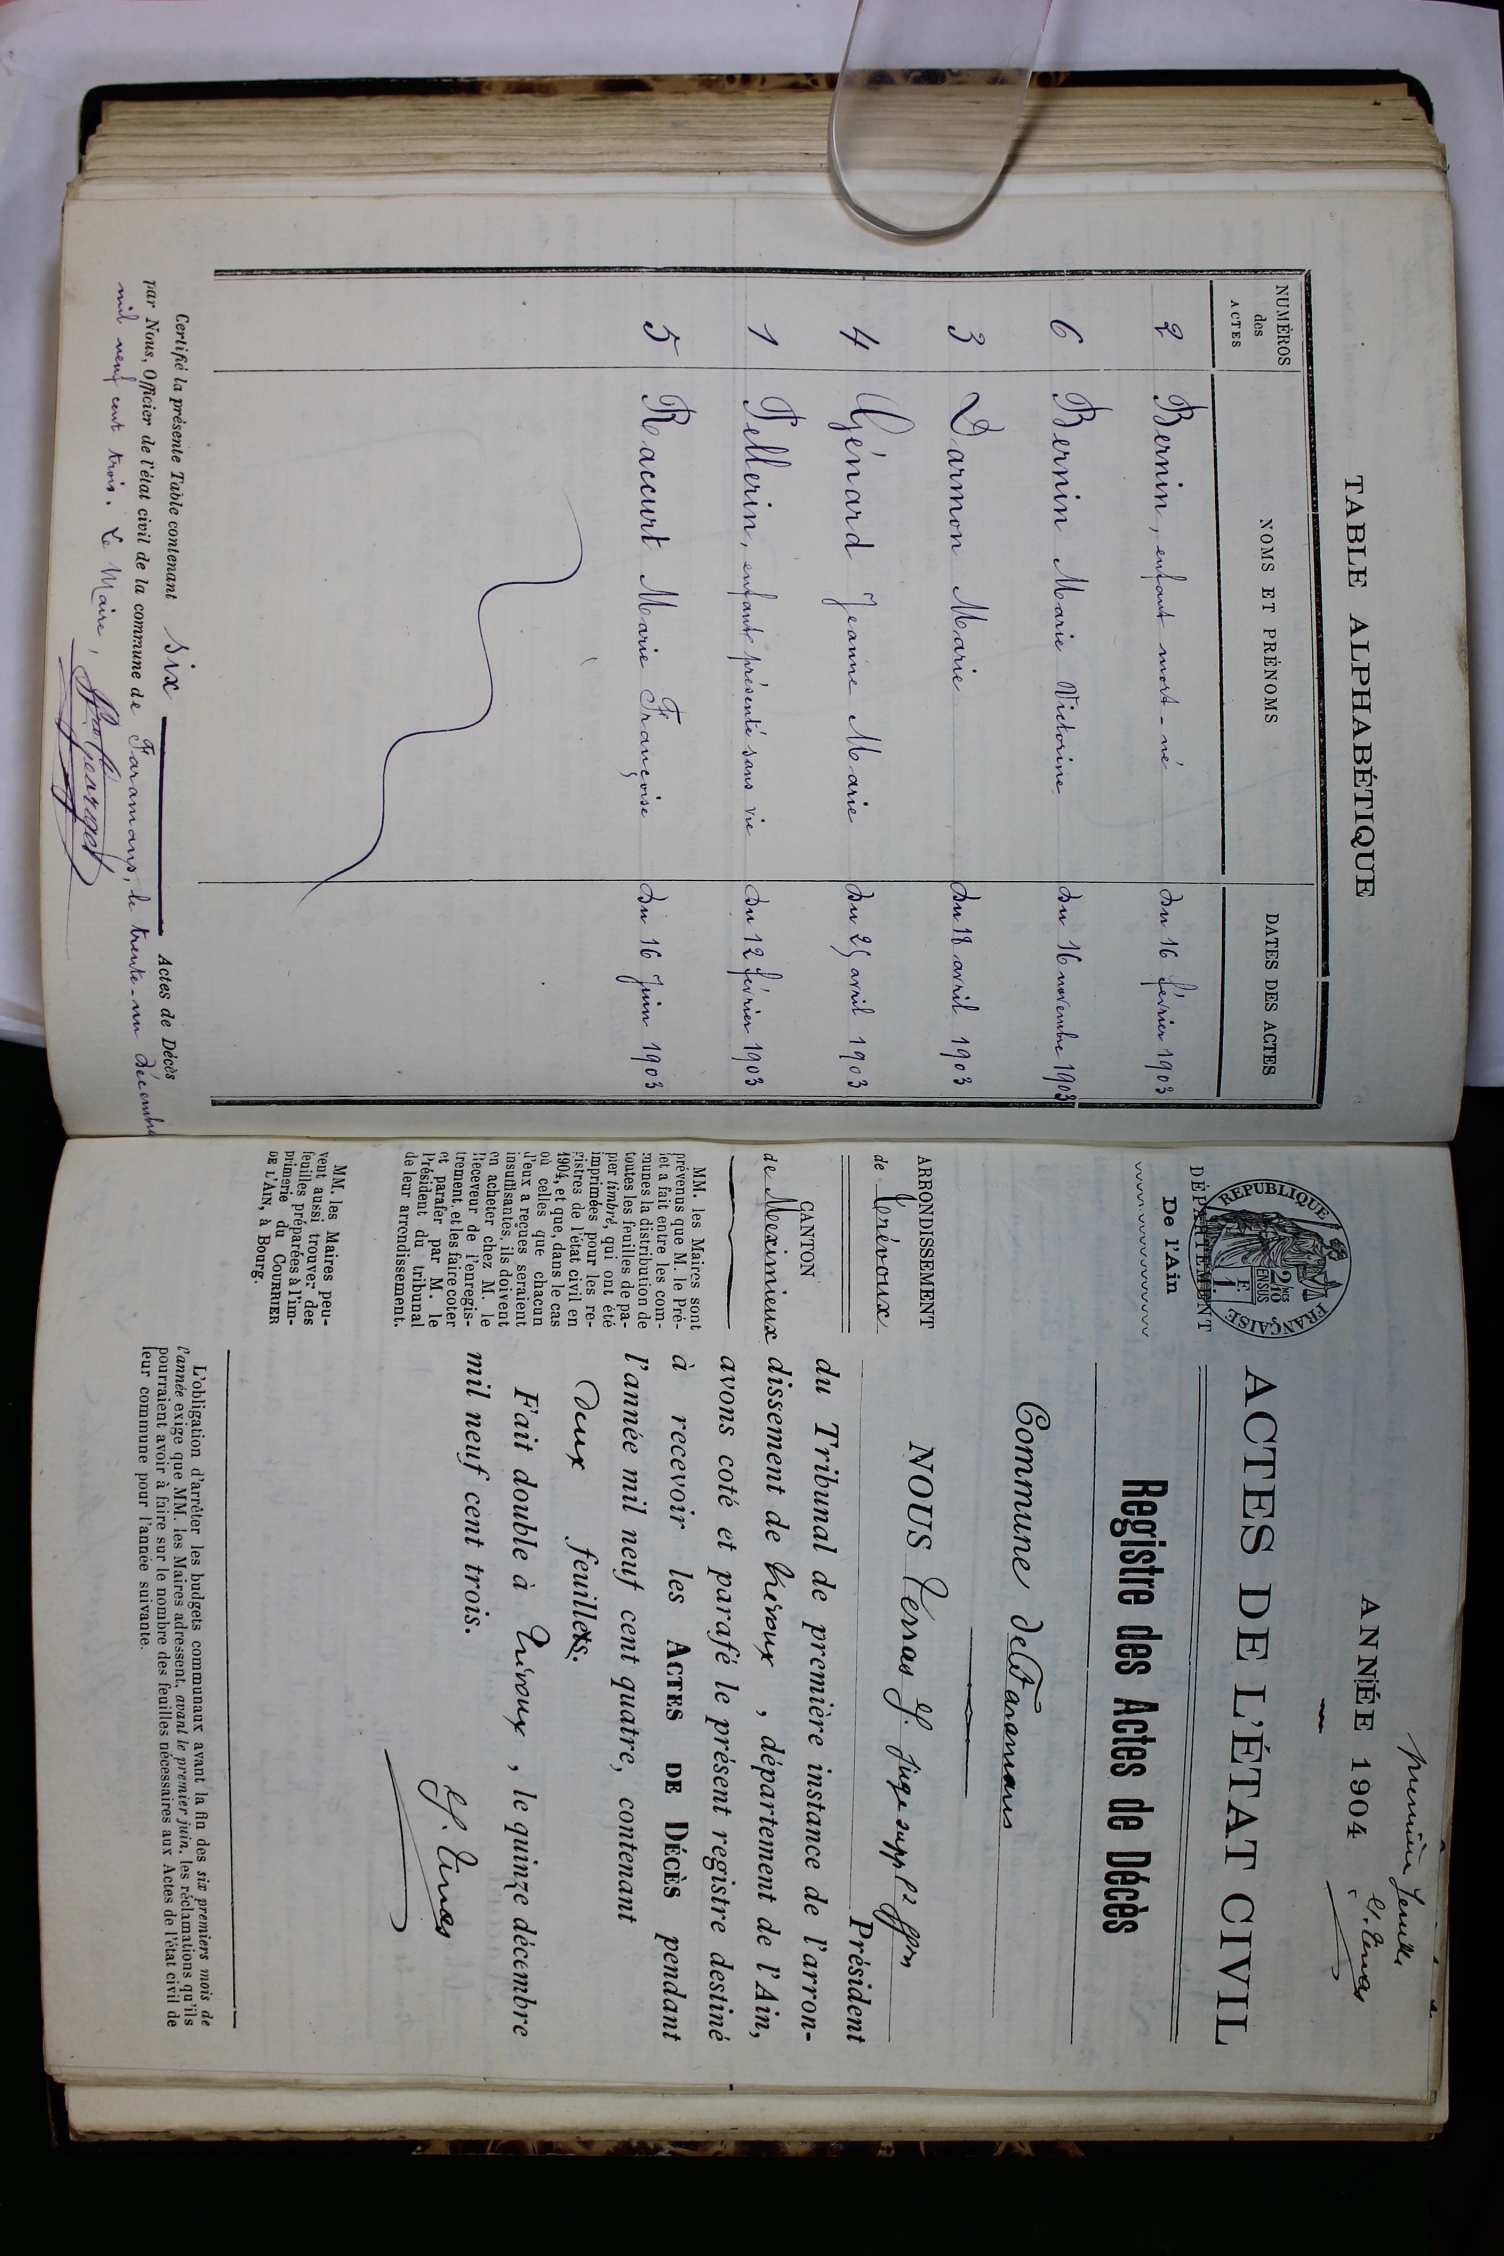 TABLE ALPHABÉTIQUE
NUMÉROS des ACTES
NOMS ET PRÉNOMS
DATES DES ACTES
2 Bernin, enfant mort-né du 16 février 1903
6 Bernin Marie Victorine du 16 novembre 1903
3 Darmon Marie du 18 avril 1903
4 Génard Jeanne Marie du 25 avril 1903
1 Pellerin, enfant présenté sans vie du 12 février 1903
5 Raccurt Marie Françoise du 16 Juin 1903
Certifié la présente Table contenant six Actes de Décès
par Nous, Officier de l'état civil de la commune de Faramans, le trente-un décembre
mil neuf cent trois. Le Maire,
première feuille
ANNÉE 1904
REPUBLIQUE FRANÇAISE
2 DMES 10 EN SUS
1 F.
DÉPARTEMENT
De l'Ain
ARRONDISSEMENT
de Trévoux
CANTON
de Meximieux
MM. les Maires sont
prévenus que M. le Pré-
fet a fait entre les com-
munes la distribution de
toutes les feuilles de pa-
pier timbré, qui ont été
imprimées pour les re-
gistres de l'état civil en
1904, et que, dans le cas
où celles que chacun
d'eux a reçues seraient
insuffisantes, ils doivent
en acheter chez M. le
Receveur de l'enregis-
trement, et les faire coter
et parafer par M. le
Président du tribunal
de leur arrondissement.
MM. les Maires peu-
vent aussi trouver des
feuilles préparées à l'im-
primerie du COURRIER
DE L'AIN, à Bourg.
ACTES DE L'ÉTAT CIVIL
Registre des Actes de Décès
Commune de Faramans
NOUS Juge suppt Président
du Tribunal de première instance de l'arron-
dissement de Trévoux, département de l'Ain,
avons coté et parafé le présent registre destiné
à recevoir les ACTES DE DÉCÈS pendant
l'année mil neuf cent quatre, contenant
deux feuillets.
Fait double à Trévoux, le quinze décembre
mil neuf cent trois.
L'obligation d'arrêter les budgets communaux avant la fin des six premiers mois de
l'année exige que MM. les Maires adressent, avant le premier juin, les réclamations qu'ils
pourraient avoir à faire sur le nombre des feuilles nécessaires aux Actes de l'état civil de
leur commune pour l'année suivante.